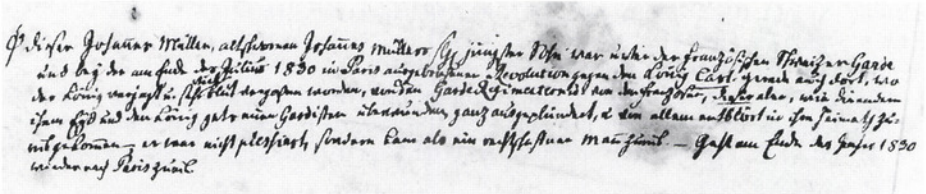 dieser Johannes Müller, altschreiner Johannes Müllers jüngster Sohn war unter der französischen Schweizer Garde
und bey der am Ende des Julius 1830 in Paris ausgebrochenen Revolution gegen den König Carl gerade auch dort, wo
der König verjagt u. viel Blut vergossen worden, von den Garderegimentern und den Franzosen, dieser aber, wie die andern
ihrem Eyd und dem König getreuen Gardisten überwunden, ganz ausgeplündert, u. von allem entblöst in ihre Heimath zu-
rükgekommen – er war nicht plessiert, sondern kam als ein rechtschafner Mann zurük. – Geht am Ende des 1830
wieder nach Paris zurük